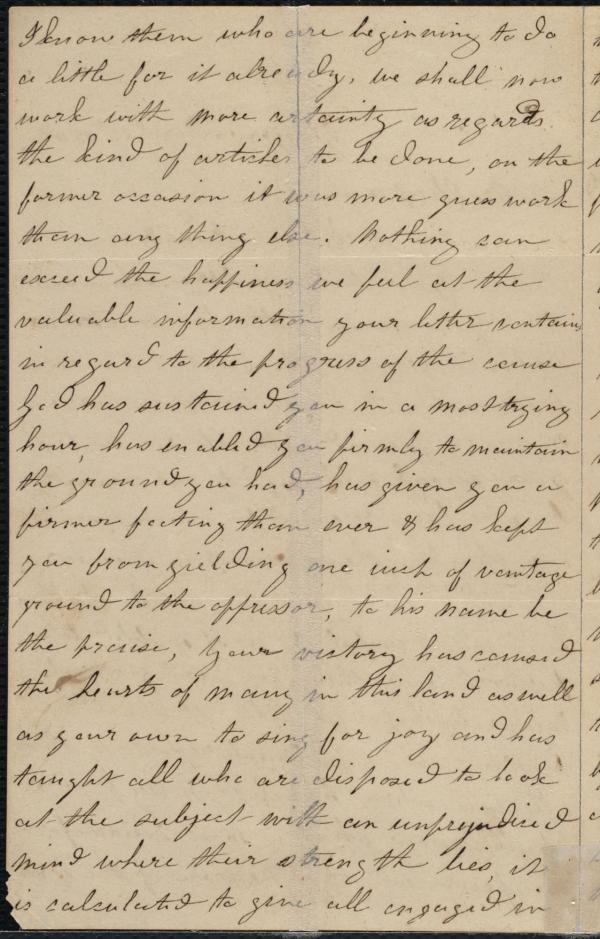 I know them who are beginning to do
a little for it already, we shall now
work with more certainty as regards
the kind of articles to be done, on the
former occasion it was more guess work
than any thing else. Nothing can
exceed the happiness we feel at the
valuable information your letter contains
in regard to the progress of the cause
God has sustained you in a most trying
hour, has enabled you firmly to maintain
the ground you had, has given you a
firmer footing than ever & has kept
you from yielding one inch of vantage
ground to the oppressor, to his name be
the praise, Your victory has caused
the hearts of many in this land as well
as your own to sing for joy and has
taught all who are disposed to look
at the subject with an unprejudised
mind where their strength lies, it
is calculated to give all engaged in